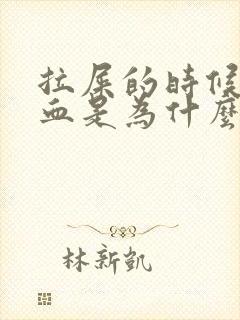 拉屎的時候
血是為什麼
林新凱